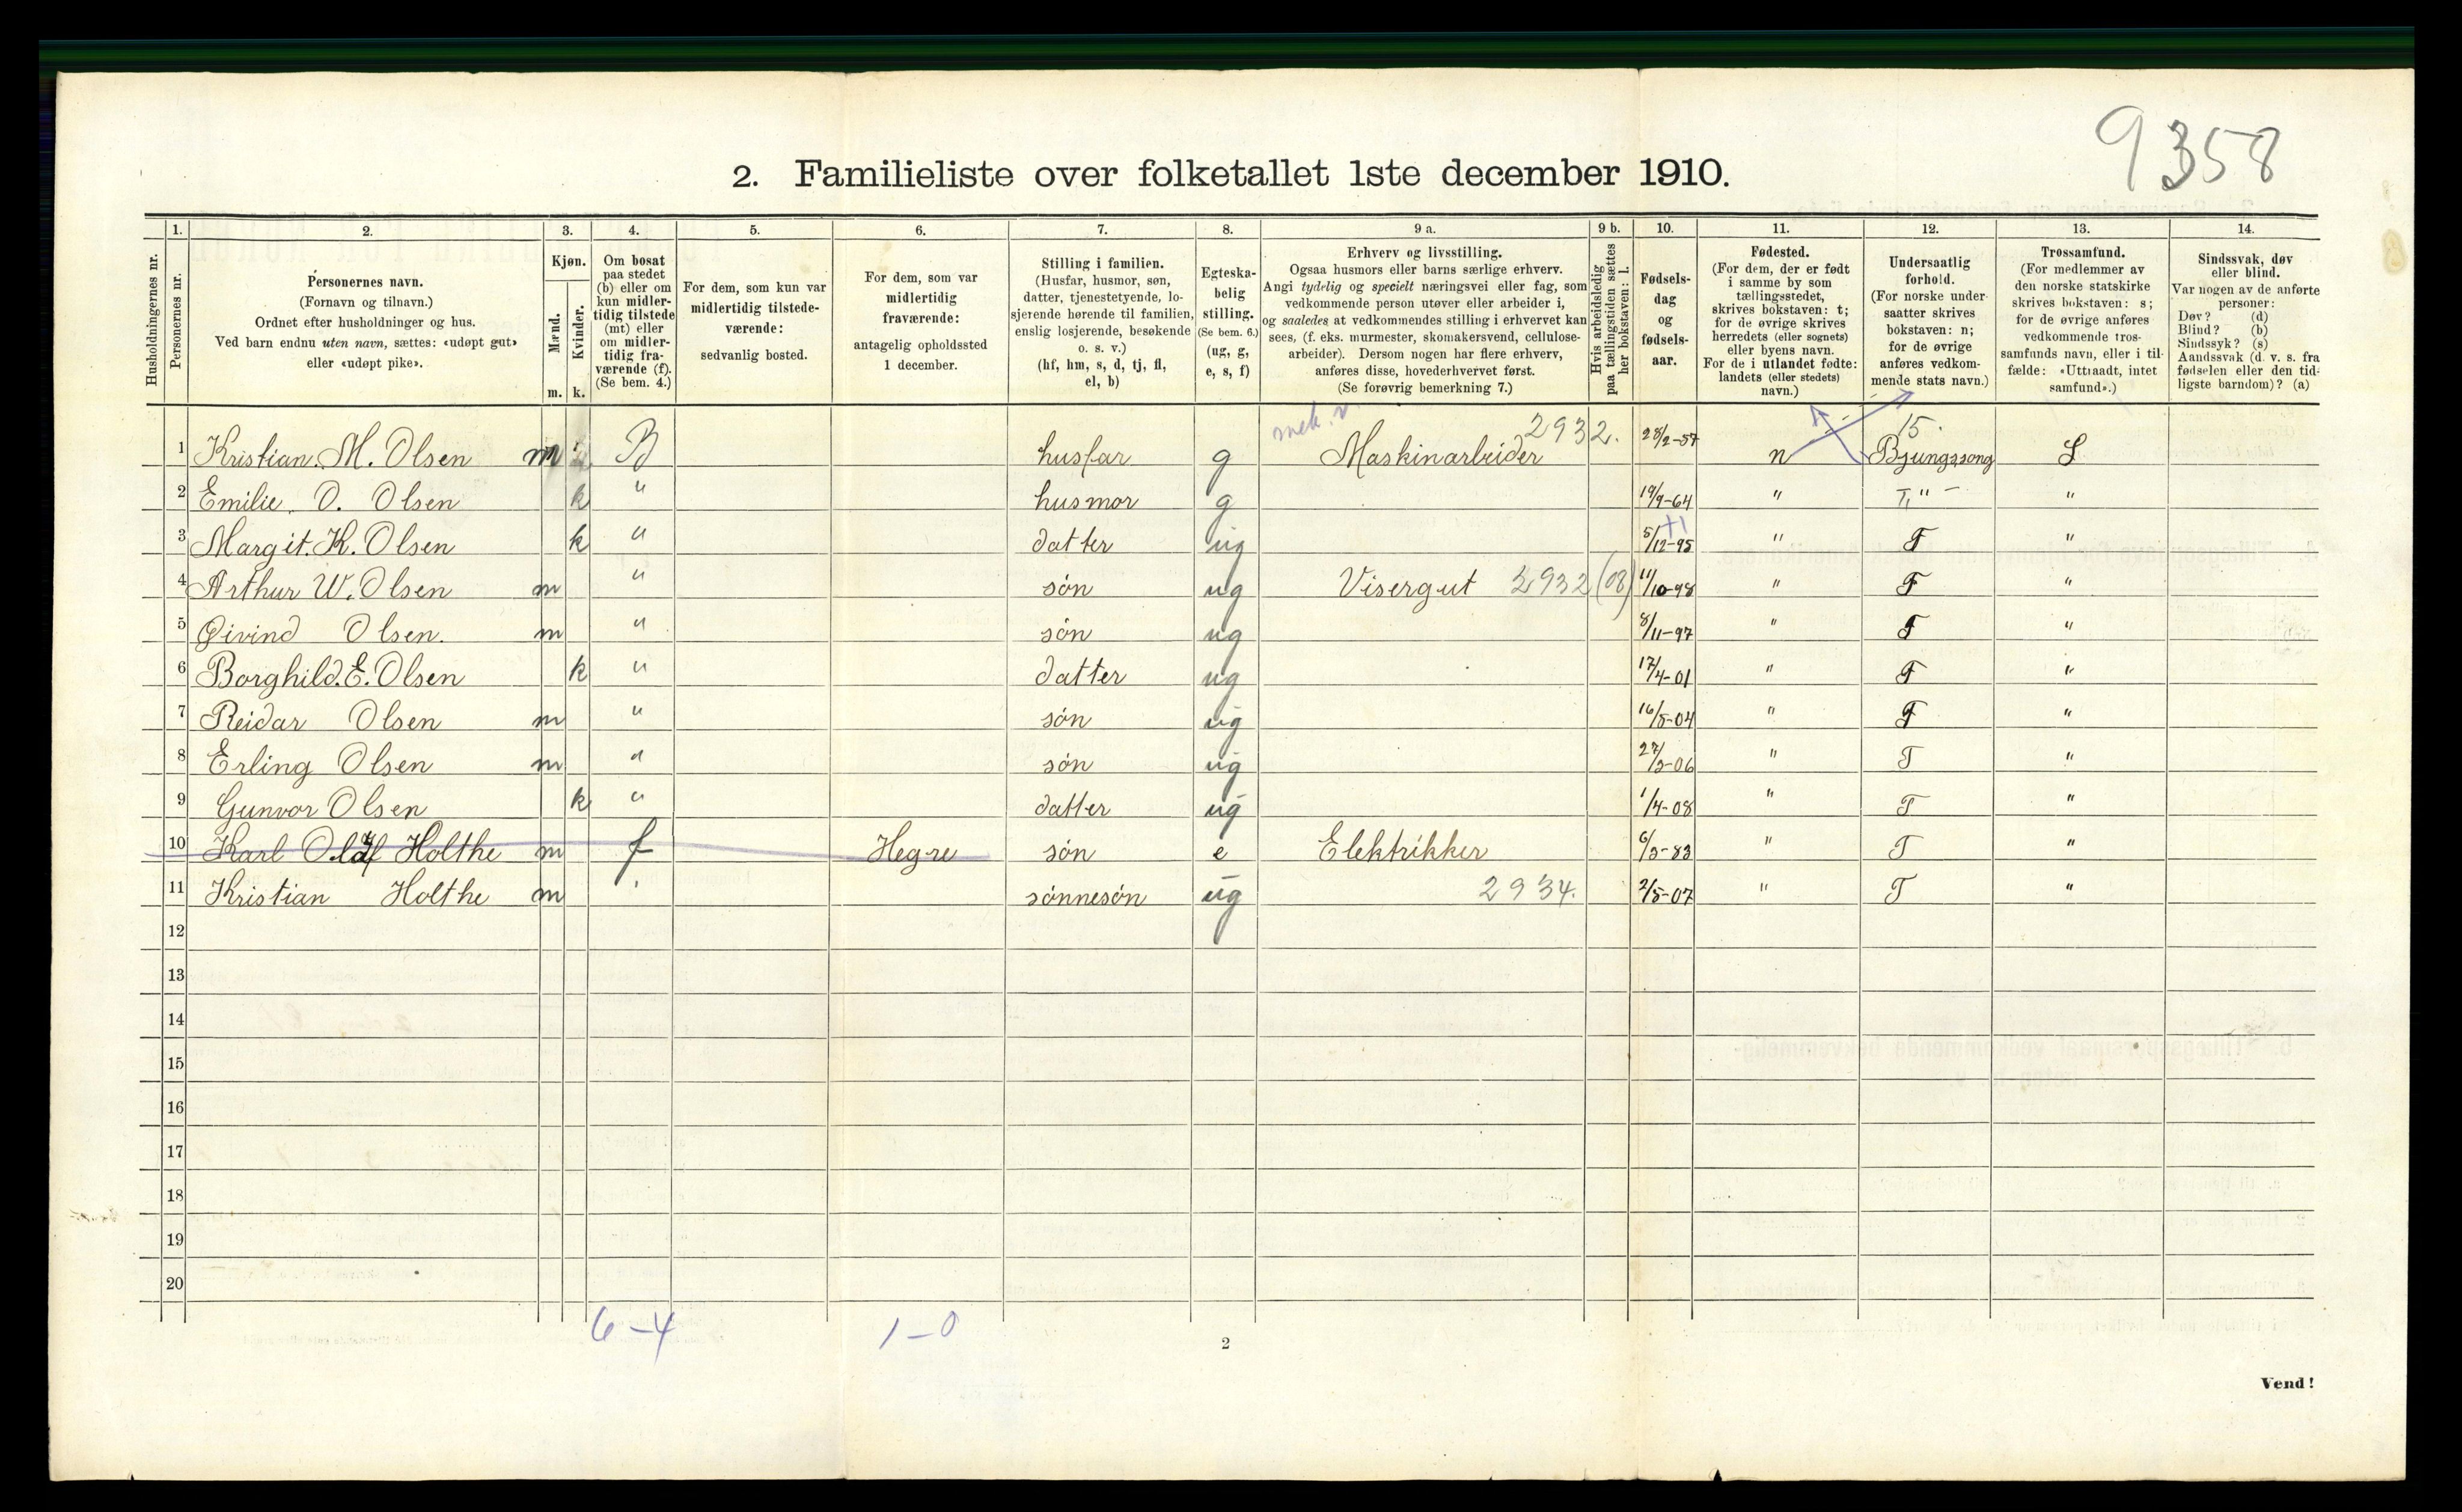 9358
2. Familieliste over folketallet 1ste december 1910.
1. 2. 3. 4. 5. 6. 7. 8. 9 a. 9 b. 10. 11. 12. 13. 14.
Husholdningernes nr.
Personernes nr.
Personernes navn.
(Fornavn og tilnavn.)
Ordnet efter husholdninger og hus.
Ved barn endnu uten navn, sættes: «udøpt gut»
eller «udøpt pike».
Kjøn.
Mænd.
Kvinder.
m. k.
Om bosat
paa stedet
(b) eller om
kun midler-
tidig tilstede
(mt) eller
om midler-
tidig fra-
værende (f).
(Se bem. 4.)
For dem, som kun var
midlertidig tilstede-
værende:
sedvanlig bosted.
For dem, som var
midlertidig
fraværende:
antagelig opholdssted
1 december.
Stilling i familien.
(Husfar, husmor, søn,
datter, tjenestetyende, lo-
sjerende hørende til familien,
enslig losjerende, besøkende
o. s. v.)
(hf, hm, s, d, tj, fl,
el, b)
Egteska-
belig
stilling.
(Se bem. 6.)
(ug, g,
e, s, f)
Erhverv og livsstilling.
Ogsaa husmors eller barns særlige erhverv.
Angi tydelig og specielt næringsvei eller fag, som
vedkommende person utøver eller arbeider i,
og saaledes at vedkommendes stilling i erhvervet kan
sees, (f. eks. murmester, skomakersvend, cellulose-
arbeider). Dersom nogen har flere erhverv,
anføres disse, hovederhvervet først.
(Se forøvrig bemerkning 7.)
Hvis arbeidsledig
paa tællingstiden sættes
her bokstaven: l.
Fødsels-
dag
og
fødsels-
aar.
Fødested.
(For dem, der er født
i samme by som
tællingsstedet,
skrives bokstaven: t;
for de øvrige skrives
herredets (eller sognets)
eller byens navn.
For de i utlandet fødte:
landets (eller stedets)
navn.)
Undersaatlig
forhold.
(For norske under-
saatter skrives
bokstaven: n;
for de øvrige
anføres vedkom-
mende stats navn.)
Trossamfund.
(For medlemmer av
den norske statskirke
skrives bokstaven: s;
for de øvrige anføres
vedkommende tros-
samfunds navn, eller i til-
fælde: «Uttraadt, intet
samfund».)
Sindssvak, døv
eller blind.
Var nogen av de anførte
personer:
Døv? (d)
Blind? (b)
Sindssyk? (s)
Aandssvak (d. v. s. fra
fødselen eller den tid-
ligste barndom)? (a)
mek. v. 2932. 15.
1 Kristian. M. Olsen m B husfar g Maskinarbeider 28/2-57 n S
2 Emilie O. Olsen k " husmor g 19/9-64 " T, " - "
3 Margit. K. Olsen k " datter ug 5/12-95 " T "
4 Arthur W. Olsen m " søn ug Visergut 2932 (08) 11/10-98 " T "
5 Øivind Olsen. m " søn ug 8/11-97 " T "
6 Borghild. E. Olsen k " datter ug 17/4-01 " T "
7 Reidar Olsen m " søn ug 16/5-04 " T "
8 Erling Olsen m " søn ug " T "
9 Gunvor Olsen k " datter ug 1/4-08 " T "
10 Karl Olaf Holthe m f Hegre søn e Elektrikker " T "
11 Kristian Holthe m ' sønnesøn ug 2934. 2/5-07 " T "
12
13
14
15
16
17
18
19
20
6-4 1-0
2
Vend!